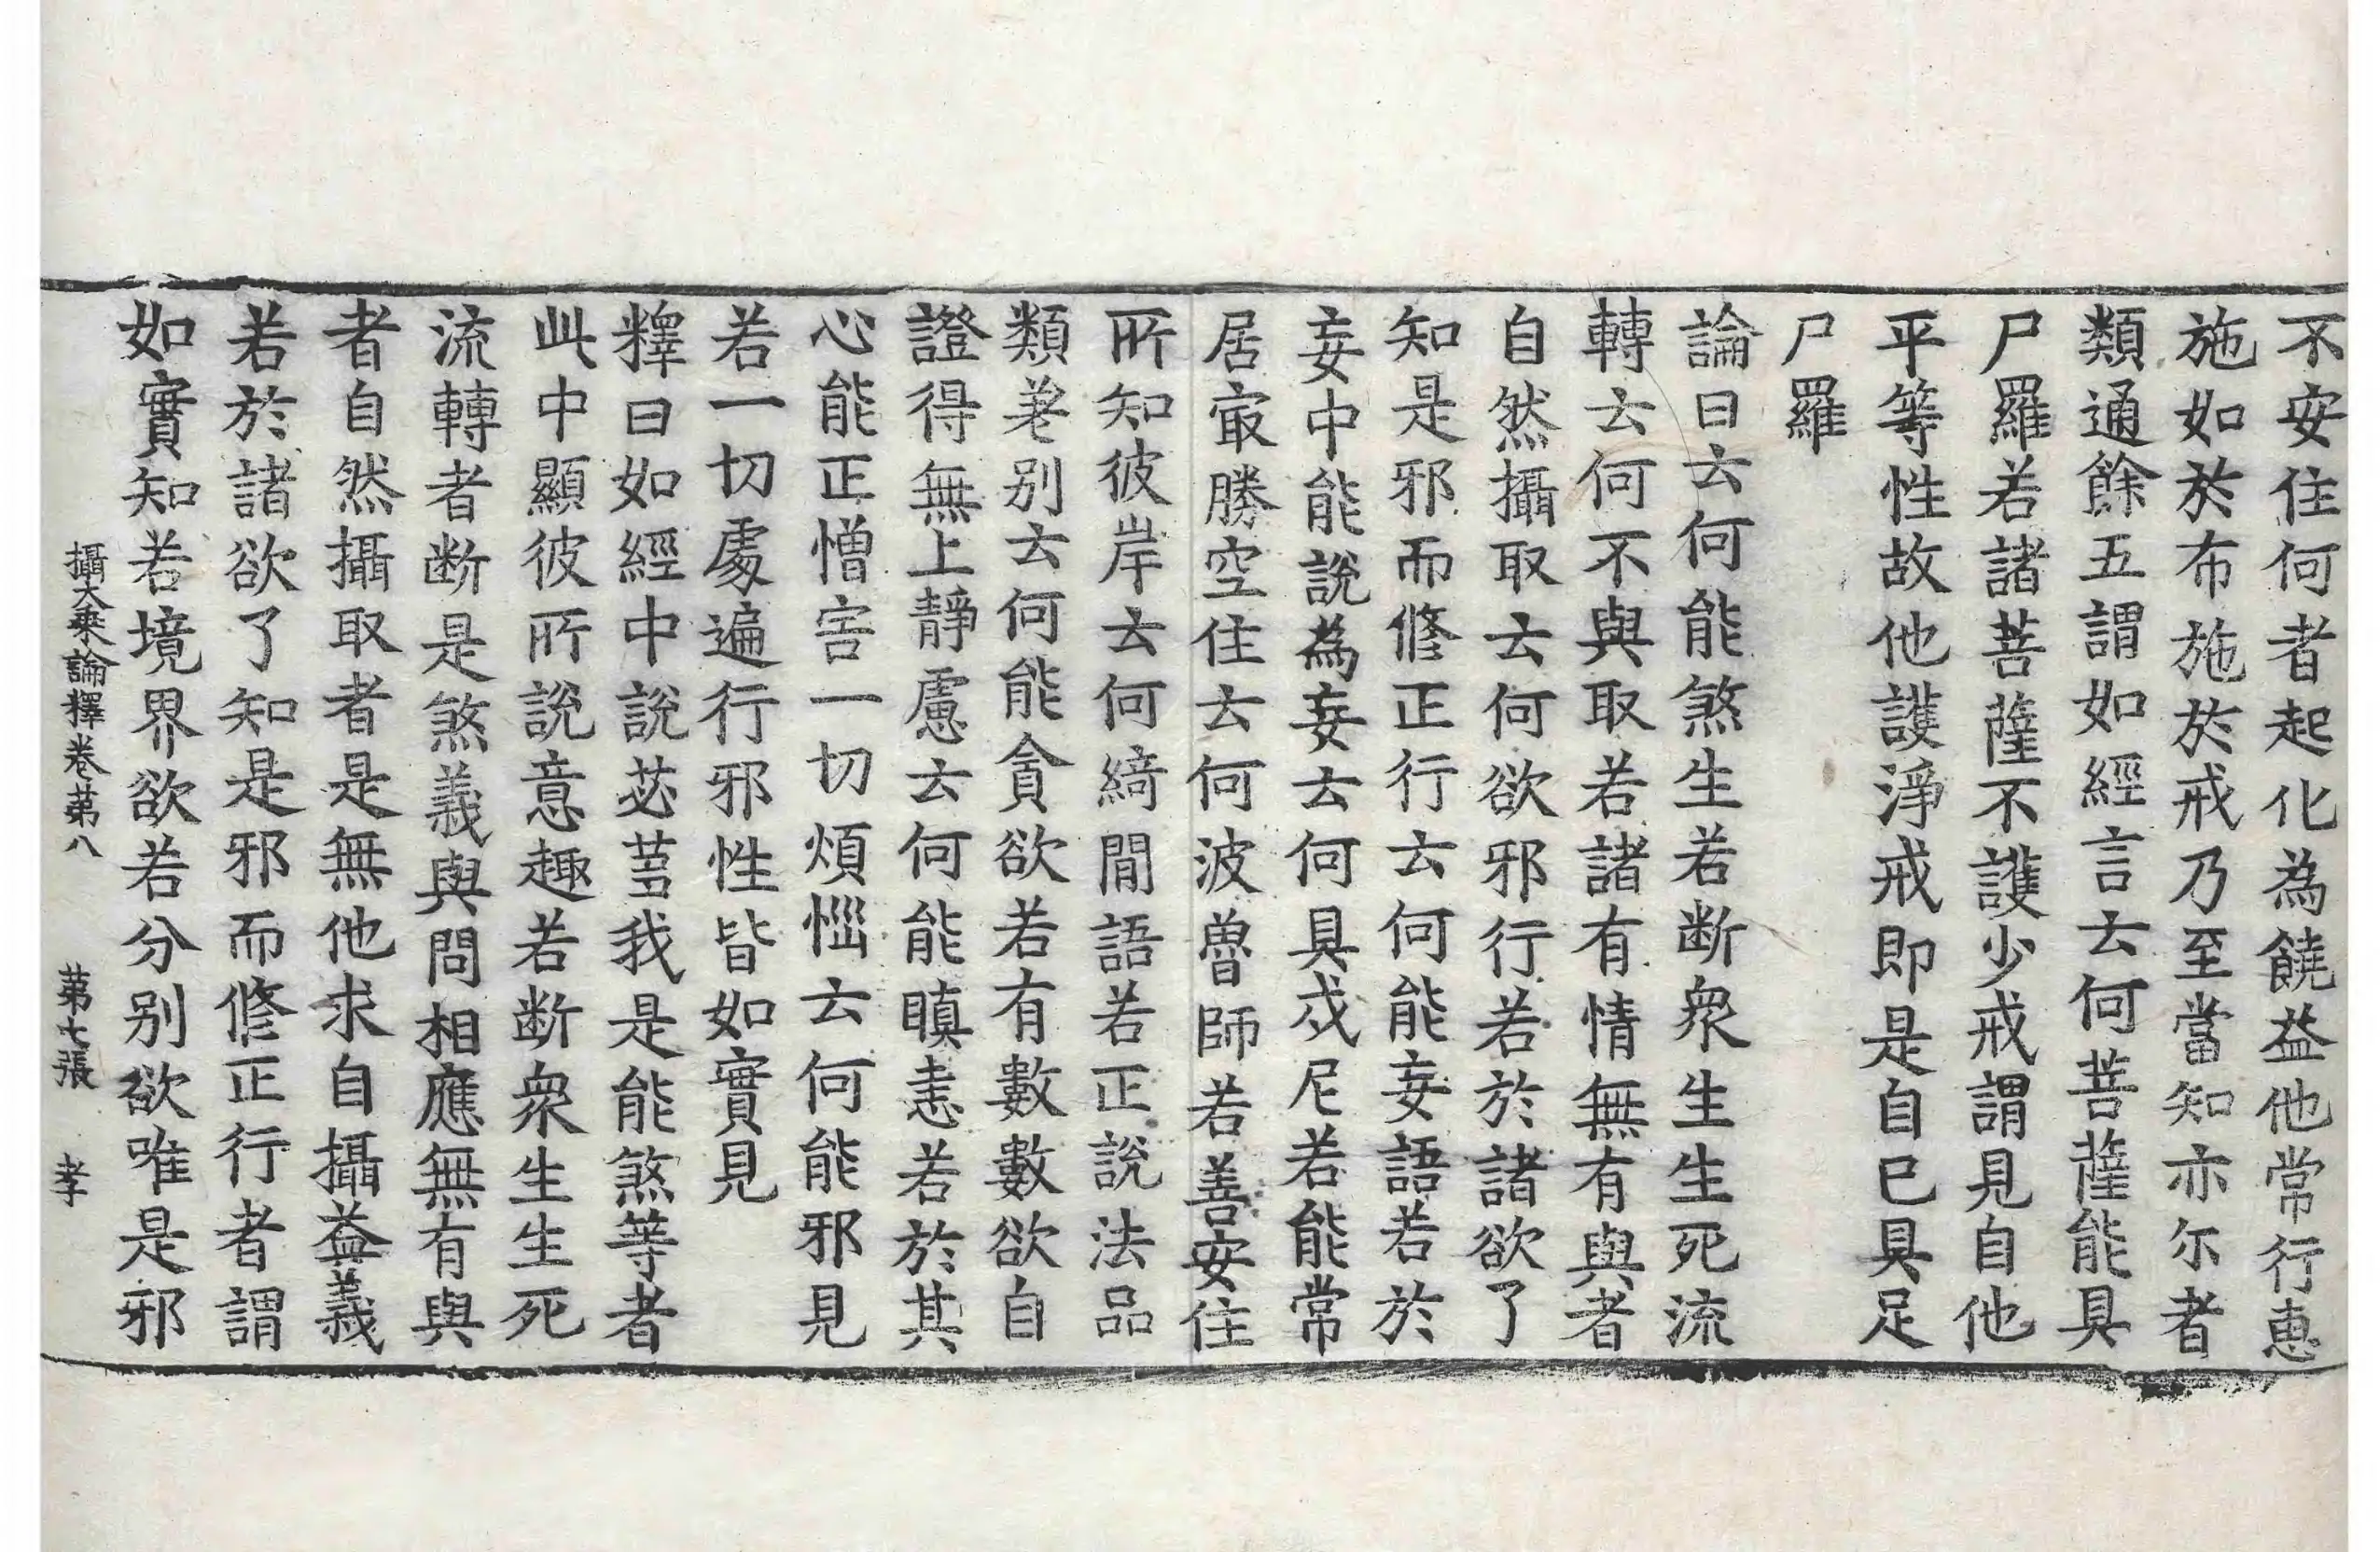 不安住何者起化為饒益他常行惠
施如於布施於戒乃至當知亦尓者
類通餘五謂如經言云何菩薩能具
尸羅若諸菩薩不護少戒謂見自他
平等性故他護淨戒即是自巳具足
尸羅
論曰云何能煞生若断衆生生死流
轉云何不與取若諸有情無有與者
自然攝取云何欲邪行若於諸欲了
知是邪而修正行云何能妄語若於
妄中能說為妄云何具戍尼若能常
居㝡勝空住云何波魯師若善安住
所知彼岸云何綺閒語若正說法品
類差别云何能貪欲若有數數欲自
證得無上靜慮云何能瞋恚若於其
心能正憎害一切煩惱云何能邪見
若一切處遍行邪性皆如實見
釋曰如經中說苾蒭我是能煞等者
此中顯彼所說意趣若断衆生生死
流轉者断是煞義與問相應無有與
者自然攝取者是無他求自攝益義
若於諸欲了知是邪而修正行者謂
如實知若境界欲若分别欲唯是邪
攝大乗論釋卷苐八 苐七張 孝